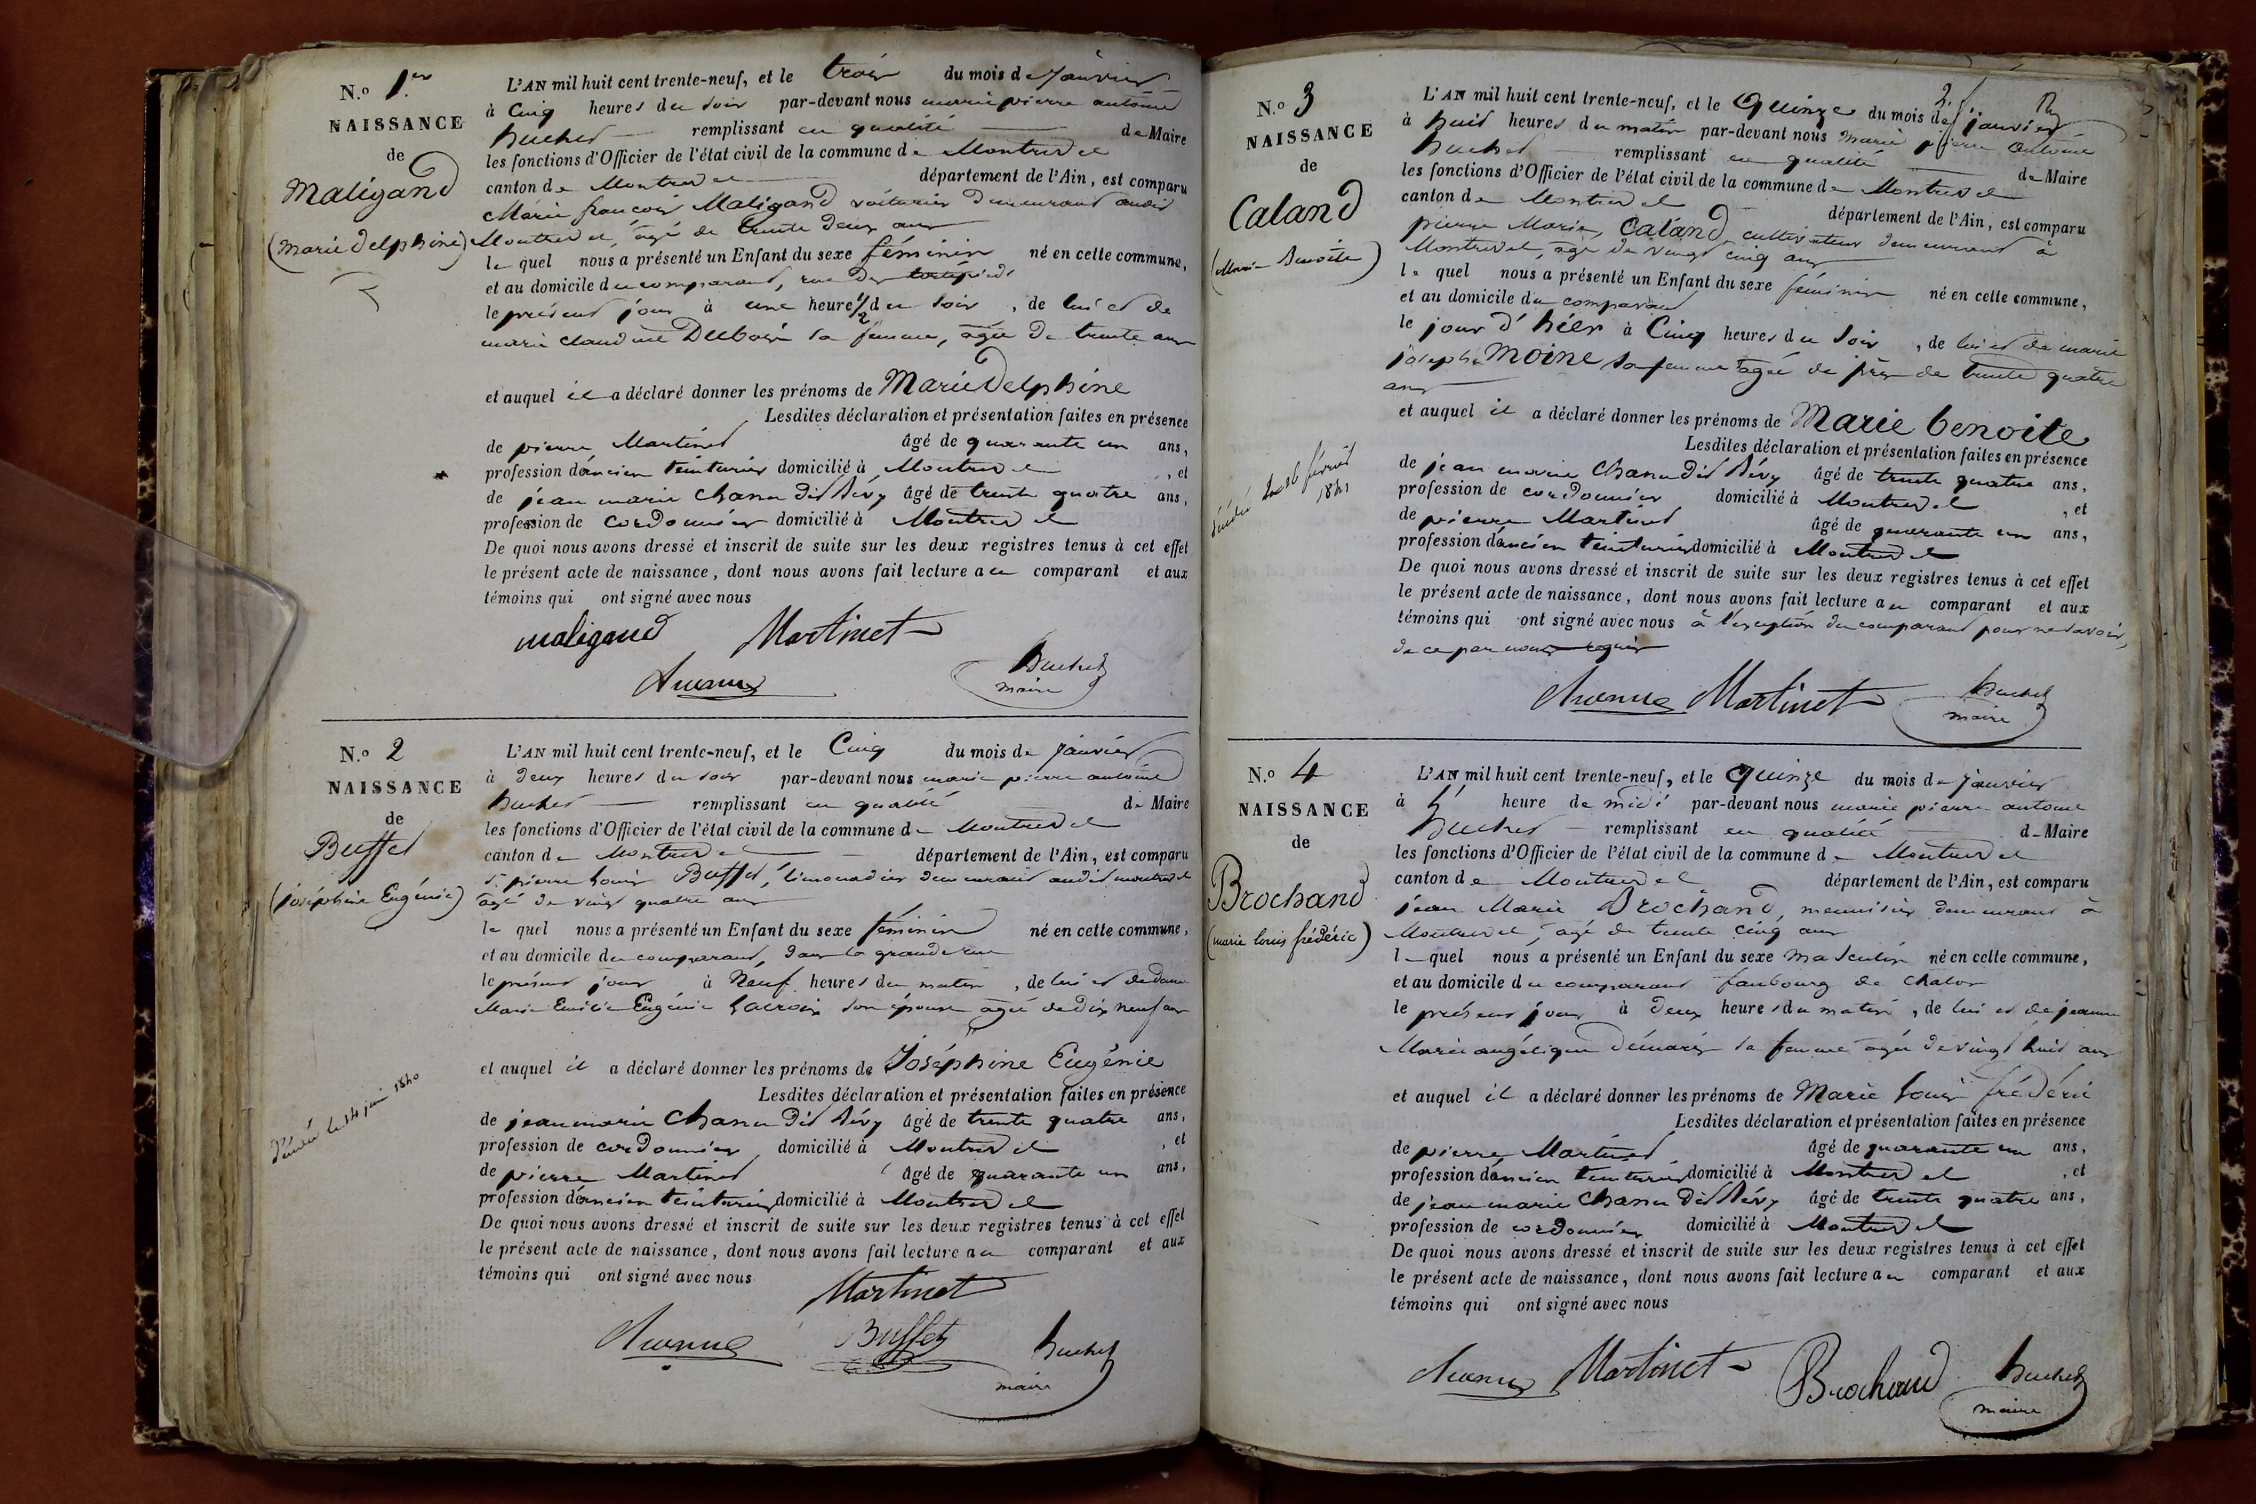 N.o 1.er
NAISSANCE
de
Maligand
(marie Delphine)
L'AN mil huit cent trente-neuf, et le trois du mois de janvier
à Cinq heures du soir par-devant nous marie pierre antoine
buchet remplissant en qualité de Maire
les fonctions d'Officier de l'état civil de la commune de Montrevel
canton de Montrevel département de l'Ain, est comparu
Marie françois Maligand voiturier demeurant audit
Montrevel, âgé de trente deux ans
le quel nous a présenté un Enfant du sexe féminin né en cette commune,
et au domicile du comparant, rue des
le présent jour à une heure 1/2 du soir, de lui et de
marie claudine Dubois sa femme, âgée de trente ans
et auquel il a déclaré donner les prénoms de Marie Delphine
Lesdites déclaration et présentation faites en présence
de pierre Martinet âgé de quarante un ans,
profession d'ancien teinturier domicilié à Montrevel, et
de jean marie Chanu dit Sévy âgé de trente quatre ans,
profession de cordonnier domicilié à Montrevel
De quoi nous avons dressé et inscrit de suite sur les deux registres tenus à cet effet
le présent acte de naissance, dont nous avons fait lecture au comparant et aux
témoins qui ont signé avec nous
maligand Martinet
buchet
maire
N.o 2
NAISSANCE
de
Buffet
(joséphine Eugénie)
décédée le 14 juin 1840
L'AN mil huit cent trente-neuf, et le Cinq du mois de janvier
à deux heures du soir par-devant nous marie pierre antoine
buchet remplissant en qualité de Maire
les fonctions d'Officier de l'état civil de la commune de Montrevel
canton de Montrevel département de l'Ain, est comparu
s. pierre Louis Buffet, limonadier demeurant audit montrevel
âgé de vingt quatre ans
le quel nous a présenté un Enfant du sexe féminin né en cette commune,
et au domicile du comparant, dans la grande rue
le présent jour à Neuf heures du matin, de lui et de dame
Marie Emilie Eugénie Lacroix son épouse âgée de dix neuf ans
et auquel il a déclaré donner les prénoms de Joséphine Eugénie
Lesdites déclaration et présentation faites en présence
de jean marie Chanu dit Sévy âgé de trente quatre ans,
profession de cordonnier domicilié à Montrevel, et
de pierre Martinet âgé de quarante un ans,
profession d'ancien teinturier domicilié à Montrevel
De quoi nous avons dressé et inscrit de suite sur les deux registres tenus à cet effet
le présent acte de naissance, dont nous avons fait lecture au comparant et aux
témoins qui ont signé avec nous
Martinet
Buffet buchet
maire
2
N.o 3
NAISSANCE
de
Caland
(Marie Benoite)
décédée le 26 février
1841
L'AN mil huit cent trente-neuf, et le Quinze du mois de janvier
à huit heures du matin par-devant nous marie pierre antoine
buchet remplissant en qualité de Maire
les fonctions d'Officier de l'état civil de la commune de Montrevel
canton de Montrevel département de l'Ain, est comparu
pierre Marie Caland cultivateur demeurant à
Montrevel, âgé de vingt cinq ans
le quel nous a présenté un Enfant du sexe féminin né en cette commune,
et au domicile du comparant
le jour d'hier à Cinq heures du soir, de lui et de marie
josephe Moine sa femme âgée de près de trente quatre
ans
et auquel il a déclaré donner les prénoms de Marie benoite
Lesdites déclaration et présentation faites en présence
de jean marie Chanu dit Sévy âgé de trente quatre ans,
profession de cordonnier domicilié à Montrevel, et
de pierre Martinet âgé de quarante un ans,
profession d'ancien teinturier domicilié à Montrevel
De quoi nous avons dressé et inscrit de suite sur les deux registres tenus à cet effet
le présent acte de naissance, dont nous avons fait lecture au comparant et aux
témoins qui ont signé avec nous à l'exception du comparant pour ne savoir,
de ce par nous requis
Martinet buchet
maire
N.o 4
NAISSANCE
de
Brochand
(marie louis frédéric)
L'AN mil huit cent trente-neuf, et le quinze du mois de janvier
à heure de midi par-devant nous marie pierre antoine
buchet remplissant en qualité de Maire
les fonctions d'Officier de l'état civil de la commune de Montrevel
canton de Montrevel département de l'Ain, est comparu
jean Marie Brochand, menuisier demeurant à
Montrevel, âgé de trente cinq ans
le quel nous a présenté un Enfant du sexe masculin né en cette commune,
et au domicile du comparant faubourg de Chalon
le présent jour à deux heures du matin, de lui et de jeanne
Marie angélique sa femme âgée de vingt huit ans
et auquel il a déclaré donner les prénoms de Marie Louis frédéric
Lesdites déclaration et présentation faites en présence
de pierre Martinet âgé de quarante un ans,
profession d'ancien teinturier domicilié à Montrevel, et
de jean marie Chanu dit Sévy âgé de trente quatre ans,
profession de cordonnier domicilié à Montrevel
De quoi nous avons dressé et inscrit de suite sur les deux registres tenus à cet effet
le présent acte de naissance, dont nous avons fait lecture au comparant et aux
témoins qui ont signé avec nous
Martinet Brochand buchet
maire